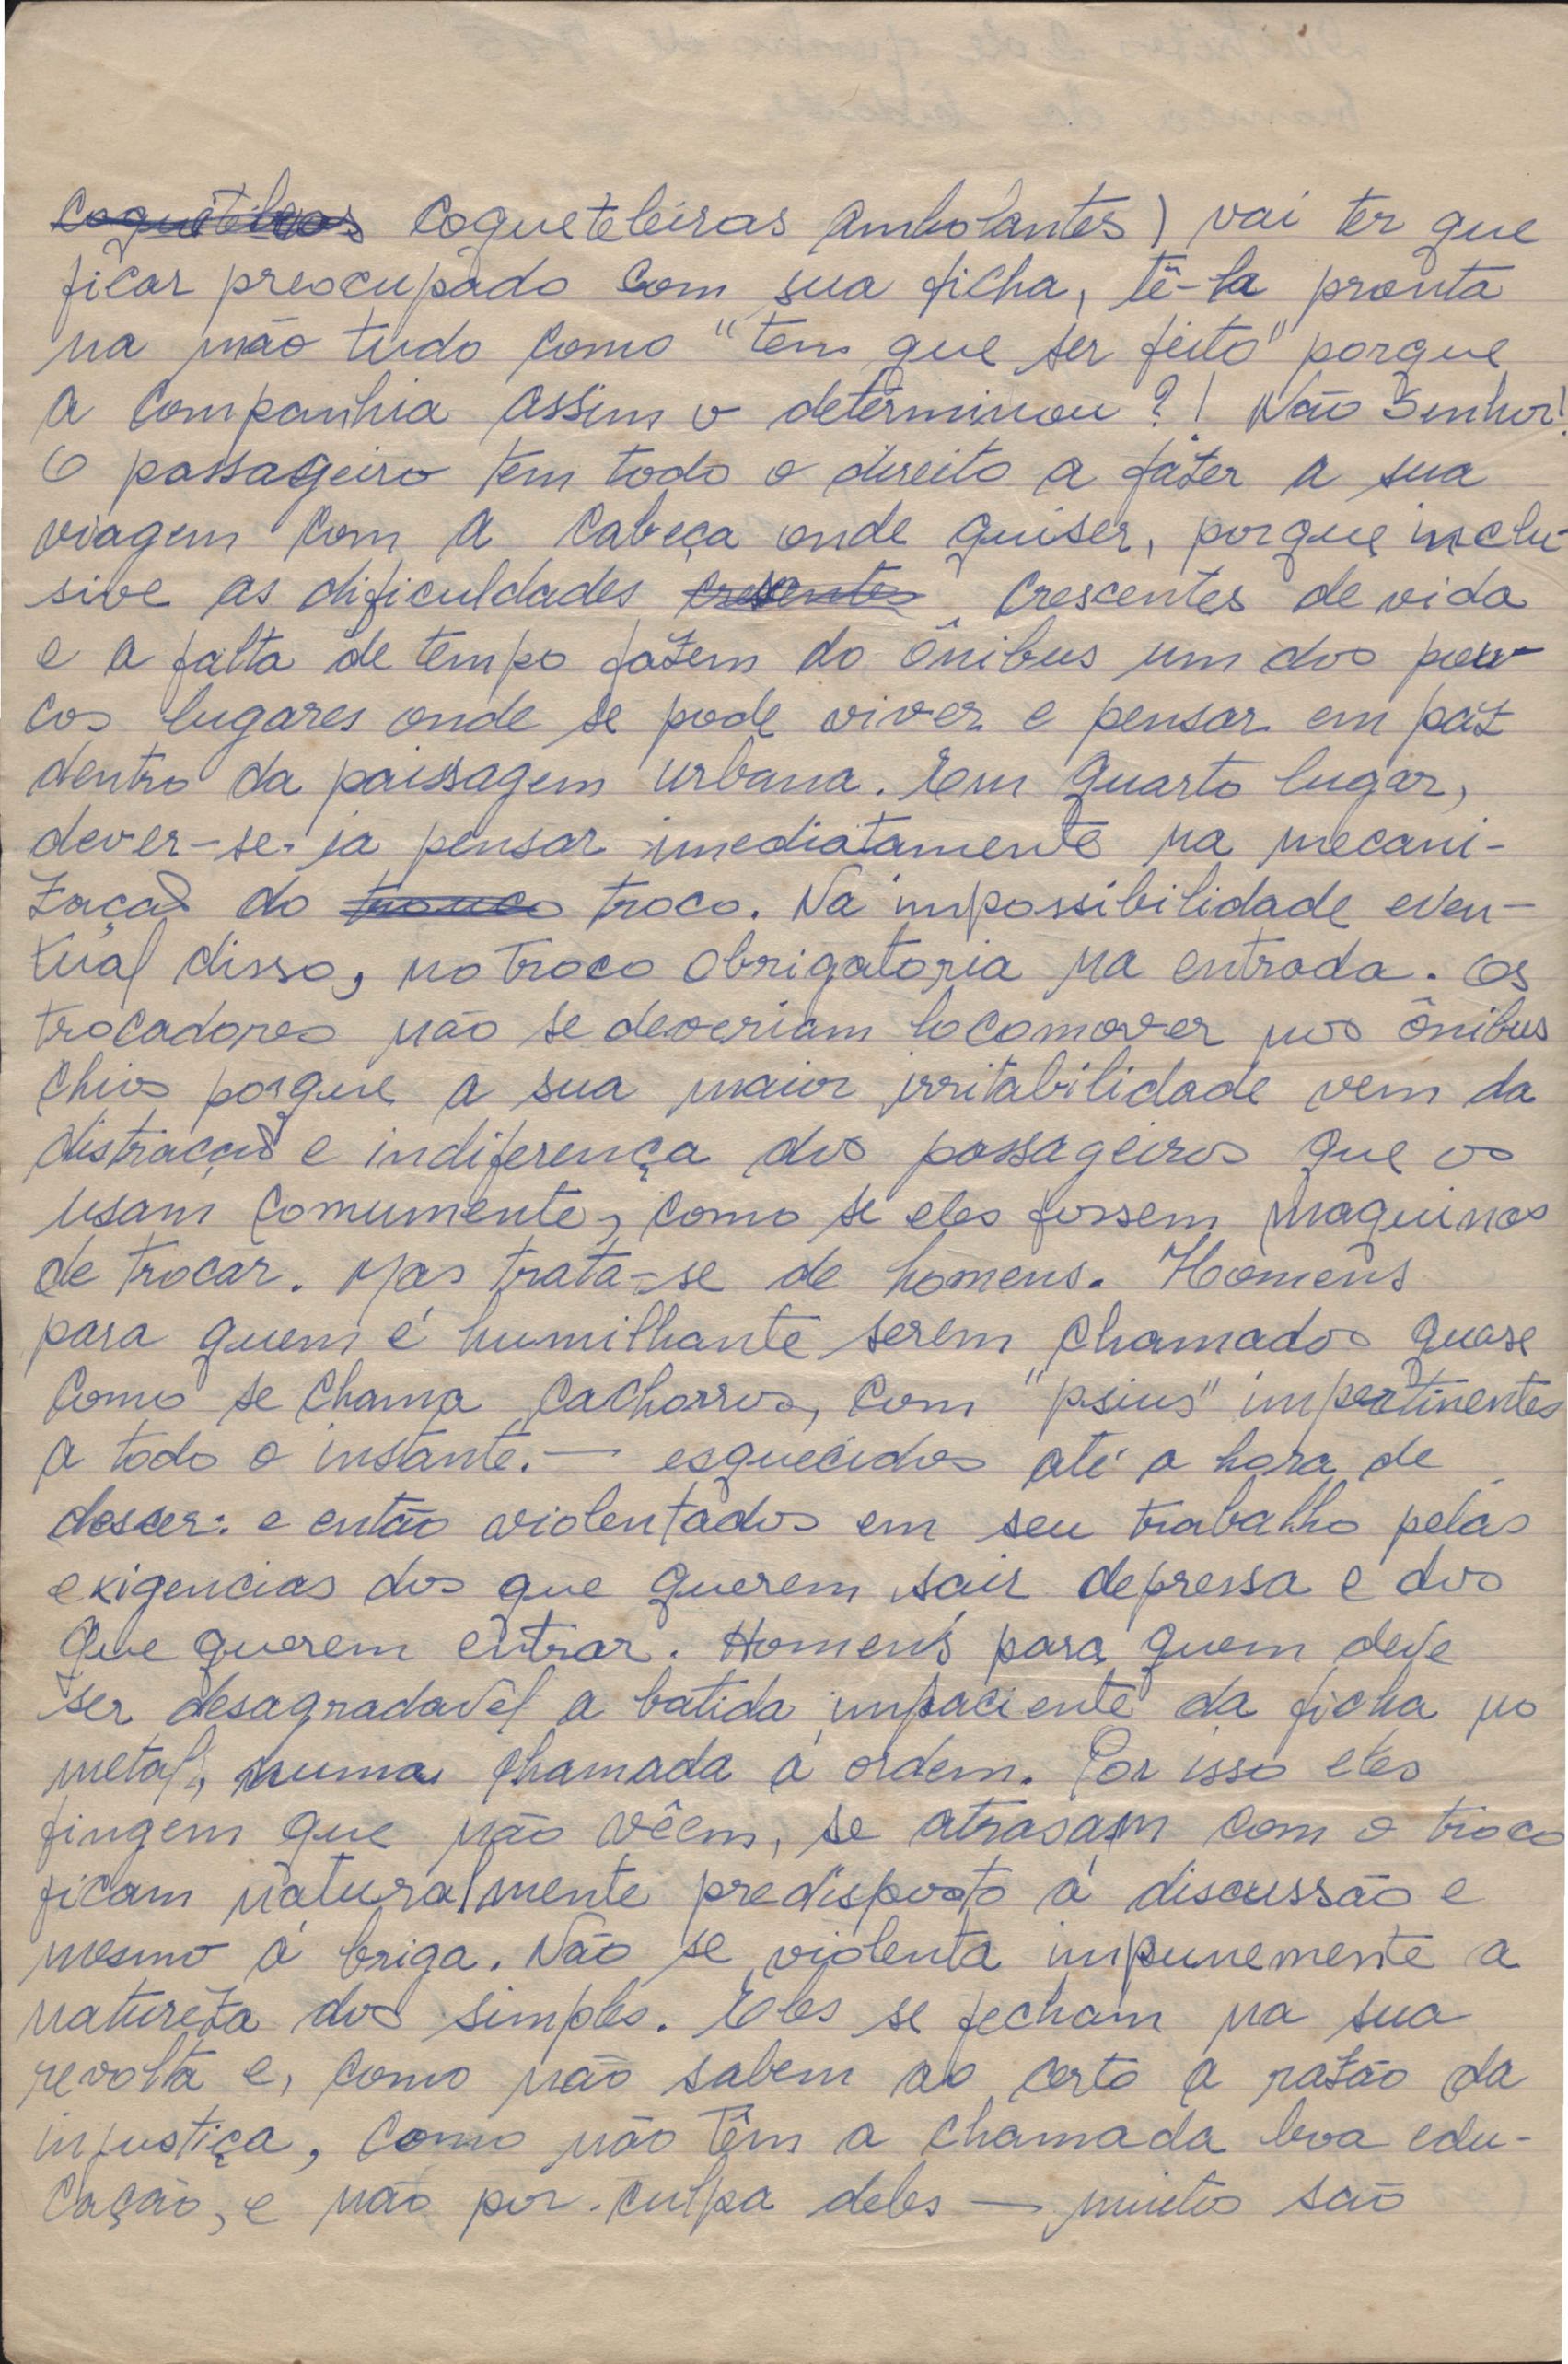 coqueteleiras coqueteleiras ambolantes) vai ter que
ficar preocupado com sua ficha, tê-la pronta
na mão tudo como "tem que ser feito" porque
a companhia assim o determinou?! Não Senhor!
O passageiro tem todo o direito a fazer a sua
viagem com a cabeça onde quiser, porque inclu-
sive as dificuldades crescentes crescentes de vida
e a falta de tempo fazem do ônibus um dos pou-
cos lugares onde se pode viver e pensar em paz
dentro da paissagem urbana. Em quarto lugar,
dever-se-ia pensar imediatamente na mecani-
zação do trouco troco. Na impossibilidade even-
tual disso, no troco obrigatoria na entrada. Os
trocadores não se deveriam locomover nos ônibus
chios porque a sua maior irritabilidade vem da
distração e indiferença dos passageiros que os
usam comumente, como se eles fossem maquinas
de trocar. Mas trata-se de homens. Homens
para quem é humilhante serem chamados quase
como se chama cachorros, com "psius" impertinentes
a todo o instante. — esquecidos até a hora de
descer: e então violentados em seu trabalho pelas
exigencias dos que querem sair depressa e dos
que querem entrar. Homens para quem deve
ser desagradavel a batida impaciente da ficha no
metal, numa chamada á ordem. Por isso eles
fingem que não vêem, se atrasam com o troco
ficam naturalmente predisposto á discussão e
mesmo á briga. Não se violenta impunemente a
natureza dos simples. Eles se fecham na sua
revolta e, como não sabem ao certo a razão da
injustiça, como não têm a chamada boa edu-
cação, e não por culpa deles — muitos são